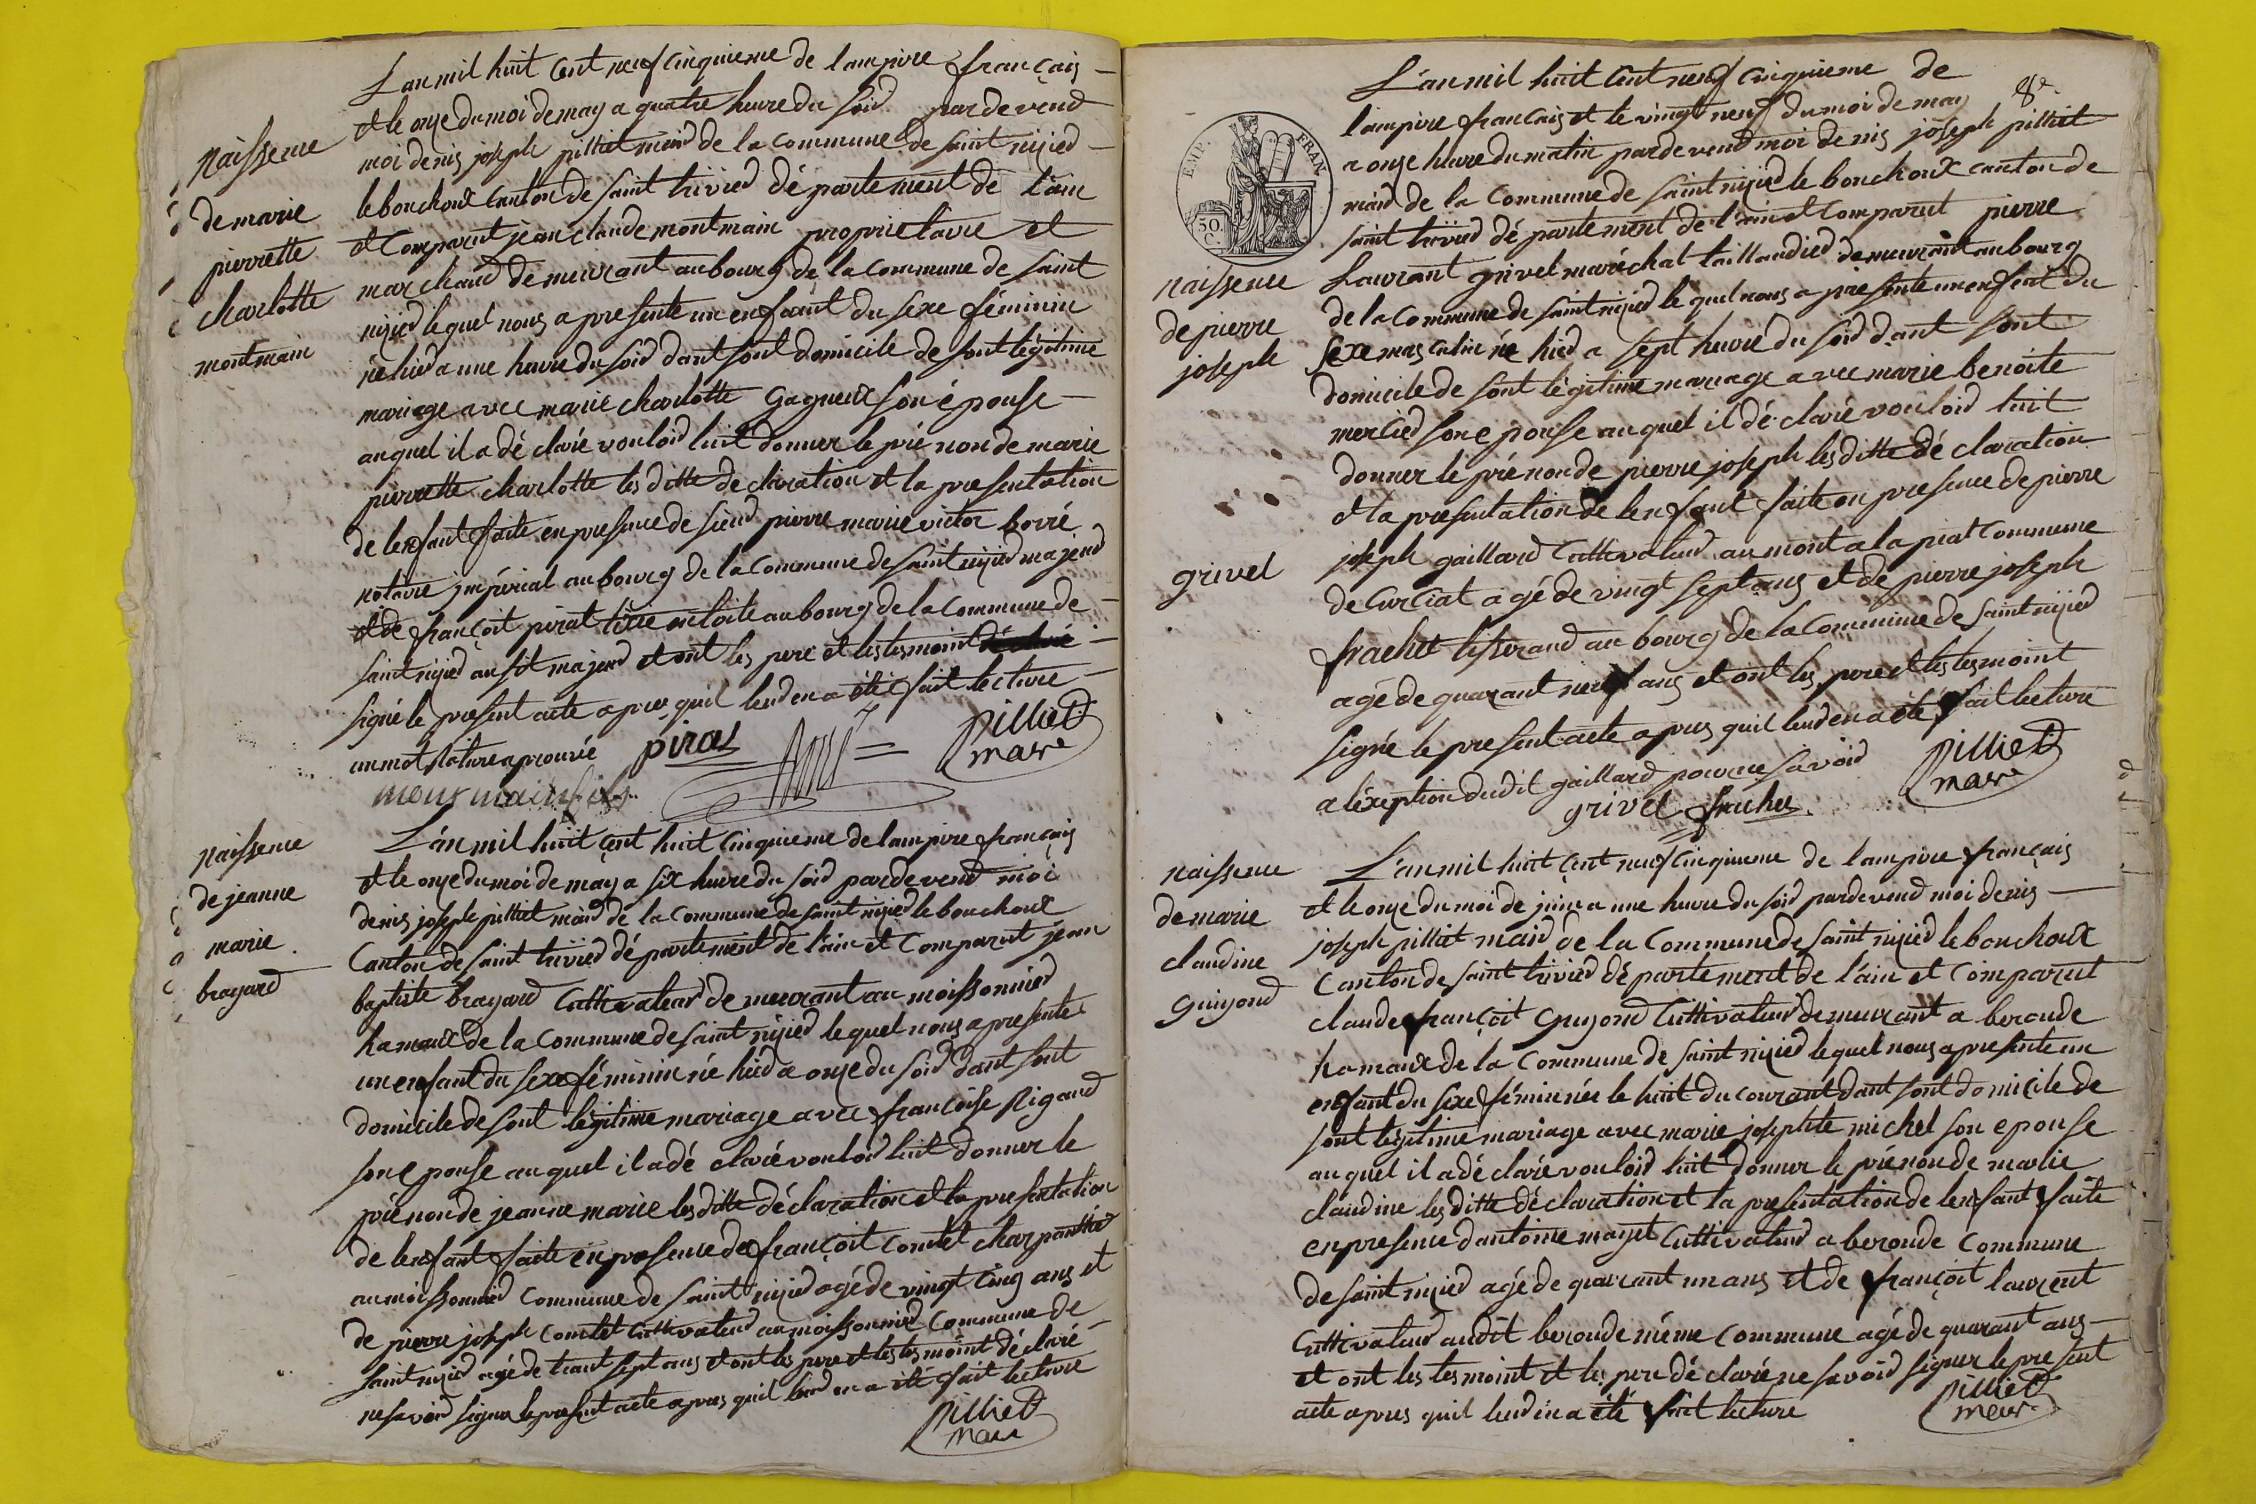 L'an mil huit cent neuf cinquieme de l'ampire français
et le onze du moi de may a quatre heure du soird pardevend
moi denis joseph pilliet maird de la commune de saint nizied
le bouchoux canton de saint trivied département de l'ain
et comparut jean claude montmain proprietaire et
marchand demeurant au bourg de la commune de saint
nizied lequel nous a presente un enfaant du sexe féminin
né hied a une heure du soird dant sont domicile de sont légitime
mariage avec marie charlotte Gagneux son épouse
auquel il a déclaré vouloird luit donner le prénon de marie
pierrette charlotte les ditte declaration et la presentation
de lenfant faite en presence de sieud pierre marie victor borré
notaire impérial au bourg de la commune de saint nizied majeud
et de françoit pirat au bourg de la commune de
saint nizied ausit majeud et ont les pere et les tesmoint
signé le present acte apres quil leud en a été fait lecture
un mot rature aprouvée pirat pilliet
maire
montmain fils
naissence
de marie
pierrette
charlotte
montmain
L'an mil huit cent huit cinquieme de lampire français
et le onze du moi de may a six heure du soird pardevend moi
denis joseph pilliet maird de la commune de saint nizied le bouchoux
canton de saint trivied département de l'ain et comparut jean
baptiste brayard cultivateur demeurant au moissonnied
hamaux de la commune de saint nizied lequel nous a presente
un enfant du sexe féminin né hied a onze du soird dant sont
domicile de sont légitime mariage avec françoise Rigaud
son epouse auquel il a déclaré vouloird luit donner le
prénon de jeanne marie les ditte déclaration et la presentation
de lenfant faite en presence de françoit comtet charpantied
au moissonnied commune de saint nizied agé de vingt cinq ans et
de pierre joseph comtet cultivateud au moissonnied commune de
saint nizied agé de trant sept ans et ont les pere et les tesmoint déclaré
ne savoird signer le present acte apres quil leud en a été fait lecture
pilliet
maire
naissence
de jeanne
marie
brayard
8e
L'an mil huit cent neuf cinquieme de
lampire français et le vingt neuf du moi de may
a onze heure du matin pardevend moi denis joseph pilliet
maird de la commune de saint nizied le bouchoux canton de
saint trivied département de l'ain et comparut pierre
Laurant grivel maréchal taillandied demeurant au bourg
de la commune de saint nizied lequel nous a presente un enfent du
sexe masculin né hied a sept heure du soird dant sont
domicile de sont légitime mariage avec marie benoite
mercied son epouse auquel il déclaré vouloird luit
donner le prénon de pierre joseph les ditte déclaration
et la presentation de lenfant faite en presence de pierre
joseph gaillard cultivateud au mont a la piat commune
de curciat agé de vingt sept ans et de pierre joseph
frachet tisserand au bourg de la commune de saint nizied
agé de quarant neuf ans et ont les pere et les tesmoint
signé le present acte apres quil leud en a été fait lecture
a léxeption dudit gaillard pour ne savoird
grivel frachet pilliet
maire
EMP. FRAN
50.
C.
naissence
de pierre
joseph
grivel
L'an mil huit cent neuf cinquieme de lampire français
et le onze du moi de juin a une heure du soird pardevend moi denis
joseph pilliet maird de la commune de saint nizied le bouchoux
canton de saint trivied département de l'ain et comparut
claude françoit guyond cultivateud demeurant a beronde
hamaux de la commune de saint nizied lequel nous a presente un
enfant du sexe féminin née le huit du courant dant sont domicile de
sont légitime mariage avec marie josephte michel son epouse
auquel il a déclaré vouloird luit donner le prénon de marie
claudine les ditte déclaration et la presentation de lenfant faite
en presence d'antoine mayet cultivateud a beronde commune
de saint nizied agé de quarant un ans et de françoit laurent
cultivateud audit beronde même commune agé de quarant ans
et ont les tesmoint et le pere déclaré ne savoird signer le present
acte apres quil leud en a été fait lecture
pilliet
maire
naissence
de marie
claudine
guyond